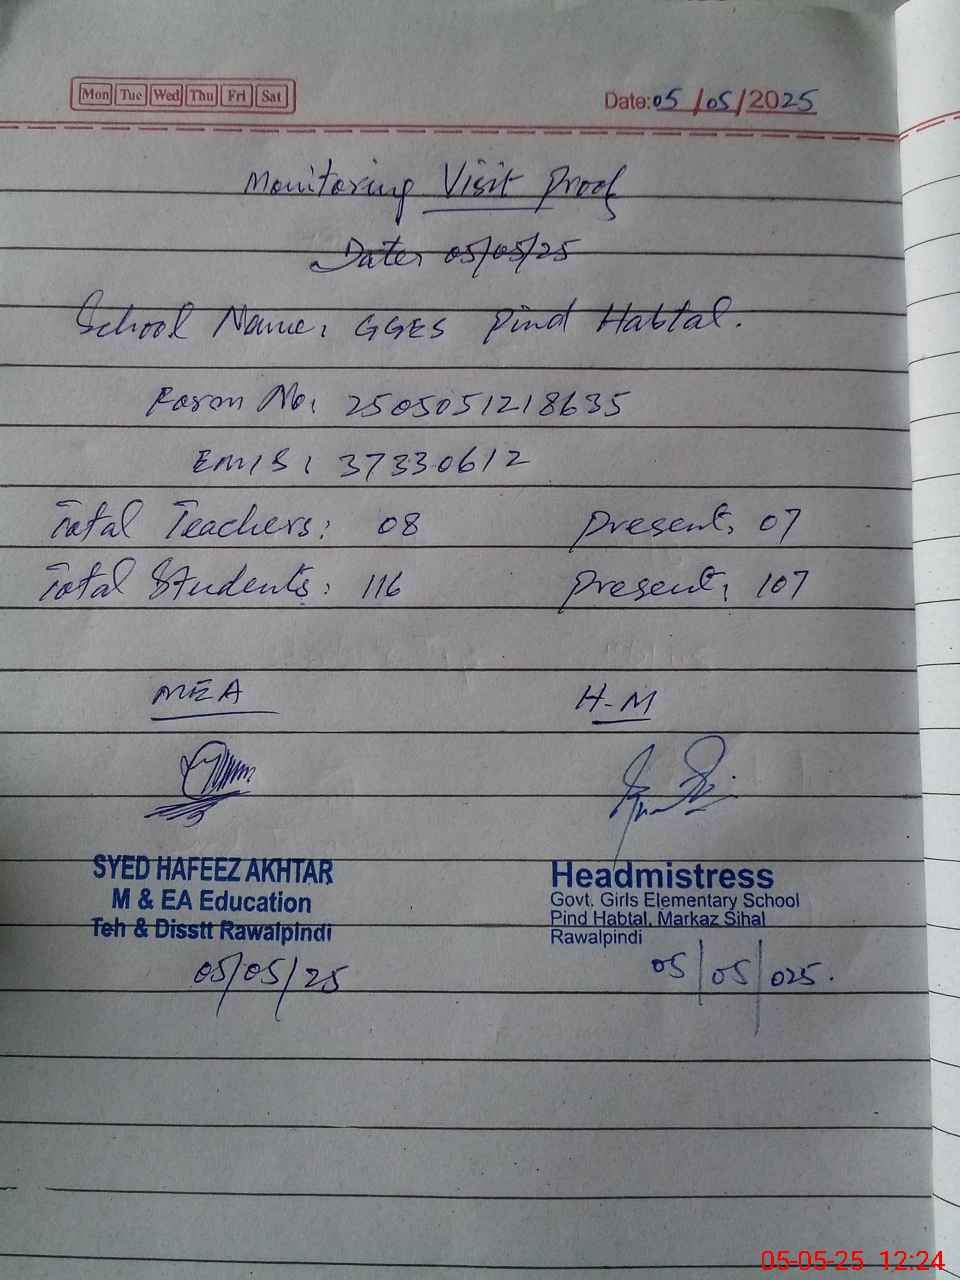 Mon Tue Wed Thu Fri Sat
Date: 05/05/2025
Monitoring Visit Proof
Date: 05/05/25
School Name: GGES Pind Habtal.
Form No: 2505051218635
EMIS: 37330612
Total Teachers: 08 Present: 07
Total Students: 116 Present: 107
MEA H-M
SYED HAFEEZ AKHTAR
M & EA Education
Teh & Disstt Rawalpindi
05/05/25
Headmistress
Govt. Girls Elementary School
Pind Habtal, Markaz Sihal
Rawalpindi
05/05/025.
05-05-25 12:24